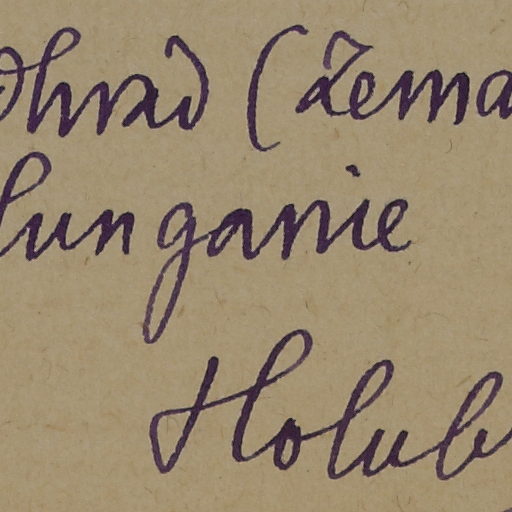 dhrad (Zema
lungarie
Holub